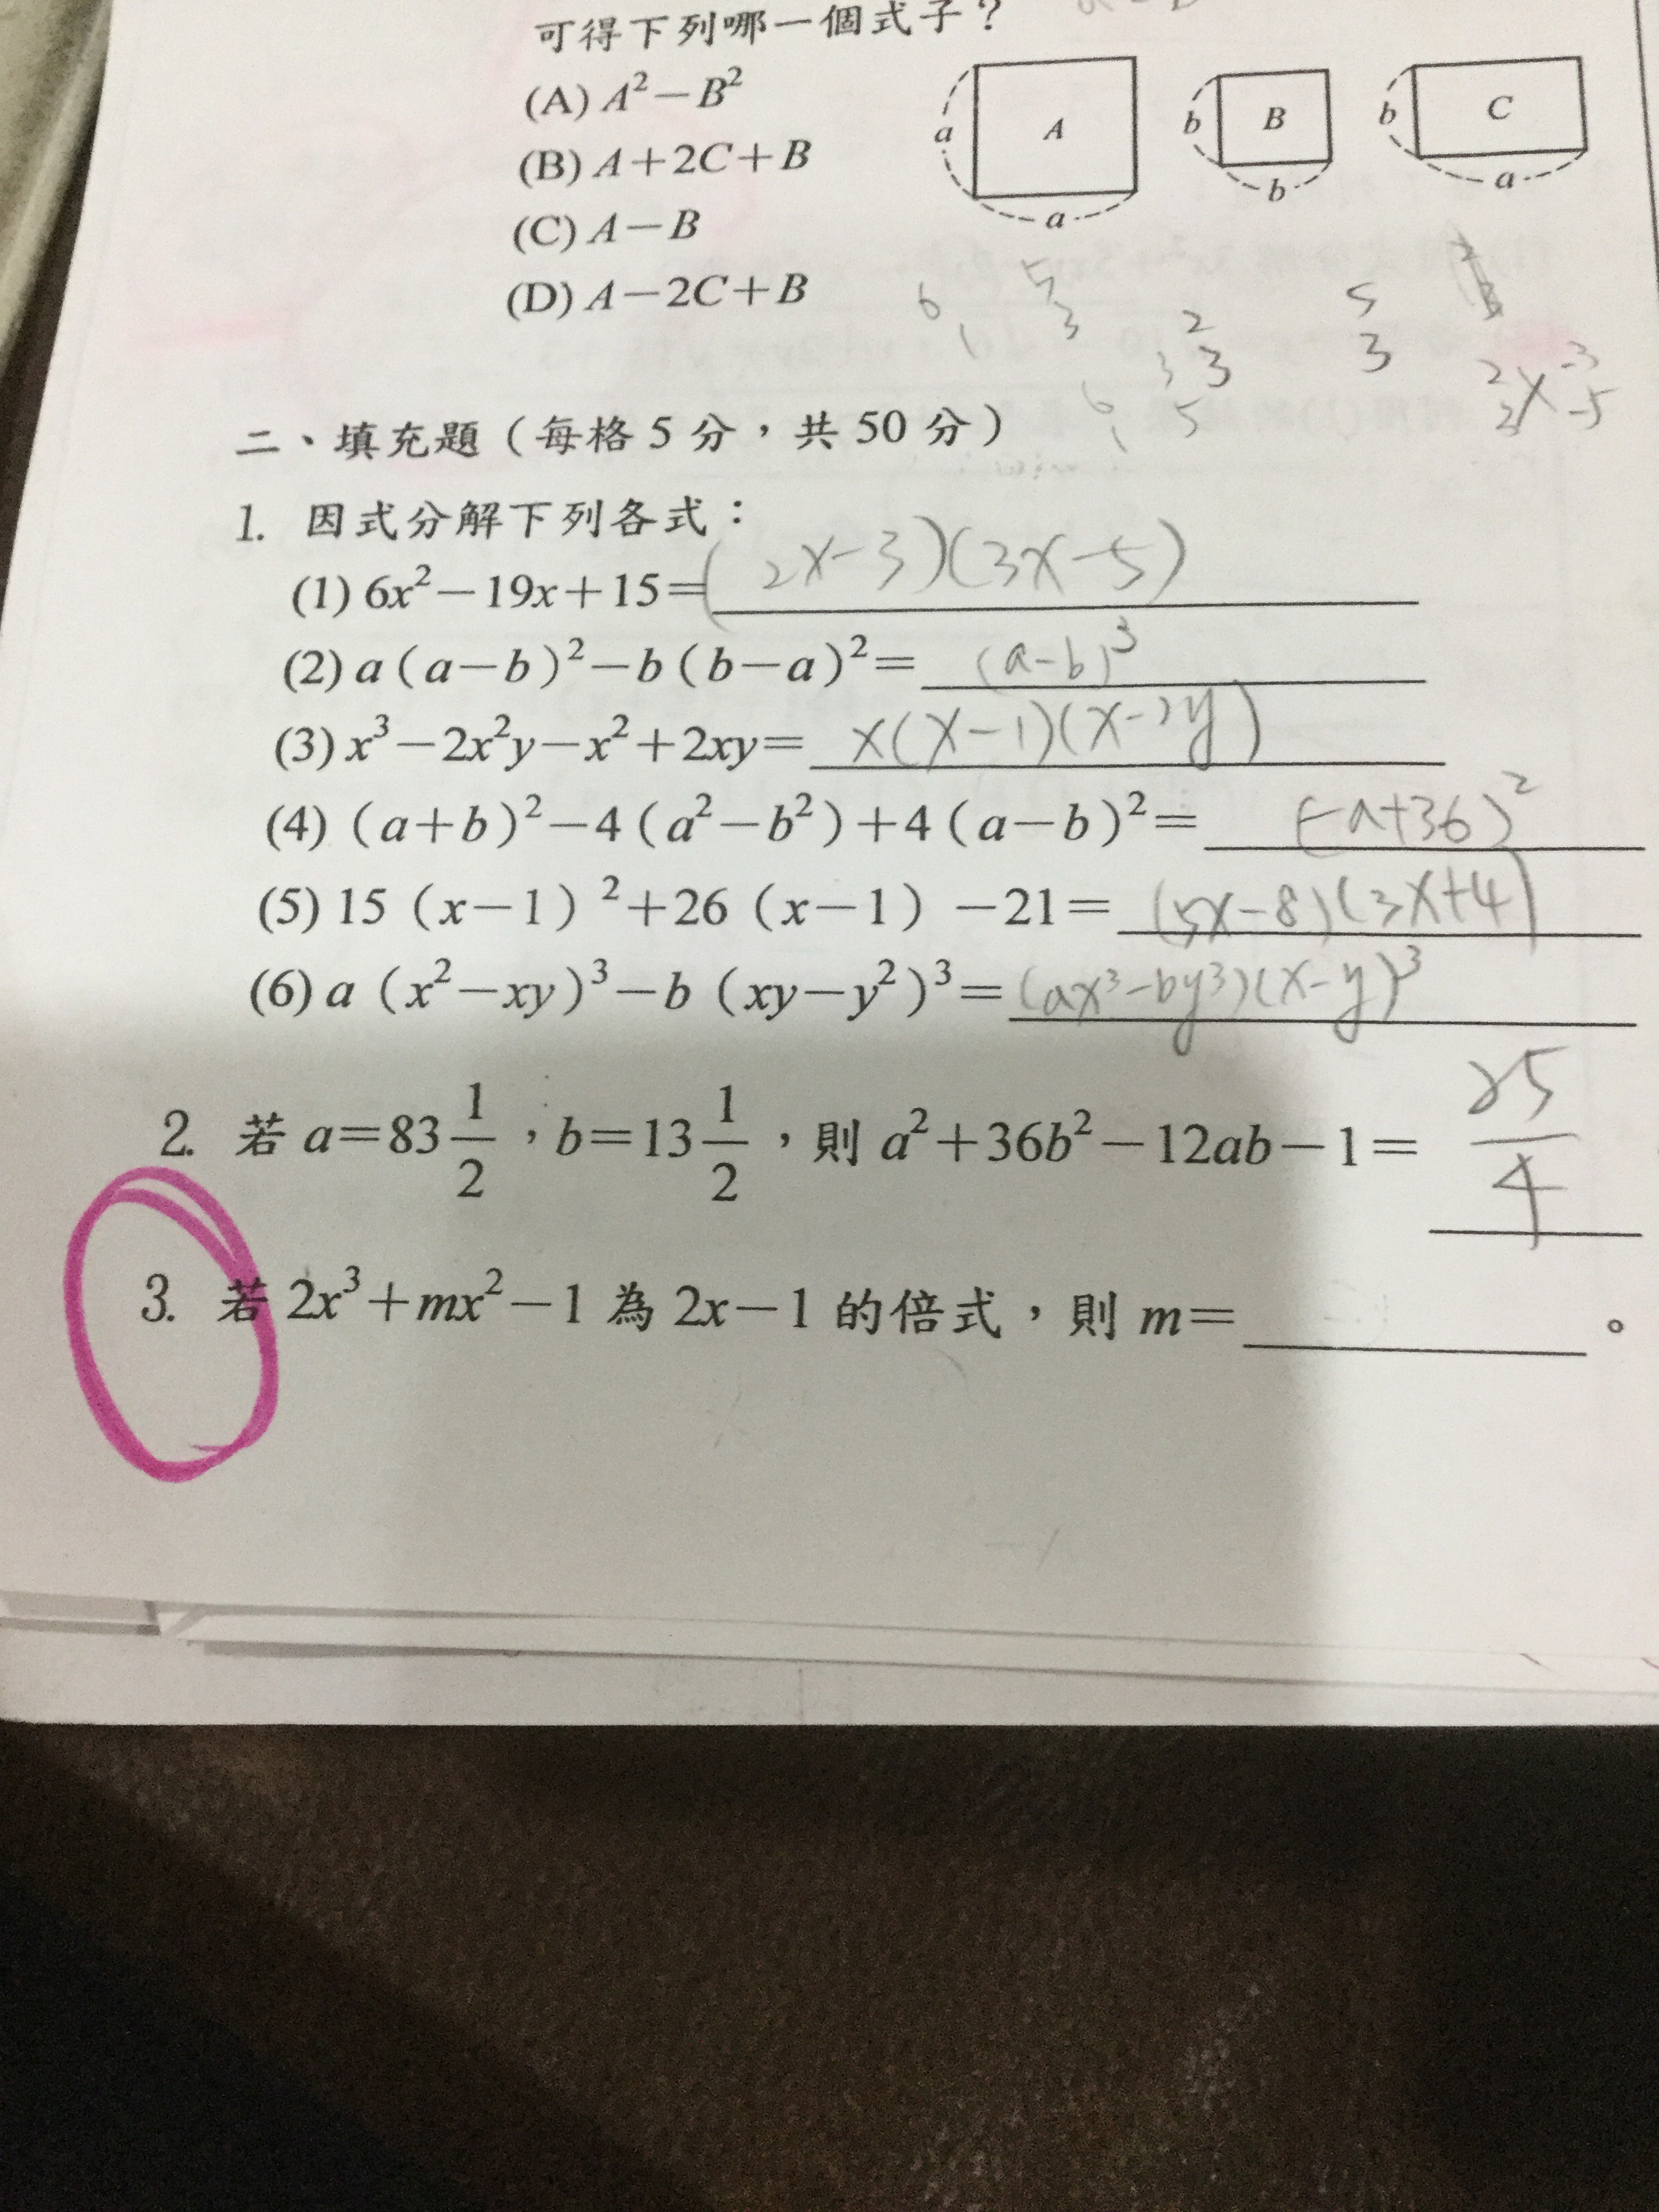 可得下列哪一個式子？
(A) A²－B²
(B) A＋2C＋B
(C) A－B
(D) A－2C＋B
a A a
b B b
b C a
6 5
1 3
2
3 3
6 5
1
5
3
2 -3
3 X -5
二、填充題（每格 5 分，共 50 分）
1. 因式分解下列各式：
(1) 6x²－19x＋15＝(2x-3)(3x-5)
(2) a（a－b）²－b（b－a）²＝(a-b)³
(3) x³－2x²y－x²＋2xy＝x(x-1)(x-2y)
(4)（a＋b）²－4（a²－b²）＋4（a－b）²＝(-a+3b)²
(5) 15（x－1）²＋26（x－1）－21＝(5x-8)(3x+4)
(6) a（x²－xy）³－b（xy－y²）³＝(ax³-by³)(x-y)³
2. 若 a＝83 1/2，b＝13 1/2，則 a²＋36b²－12ab－1＝ 25/4
3. 若 2x³＋mx²－1 為 2x－1 的倍式，則 m＝＿＿＿。